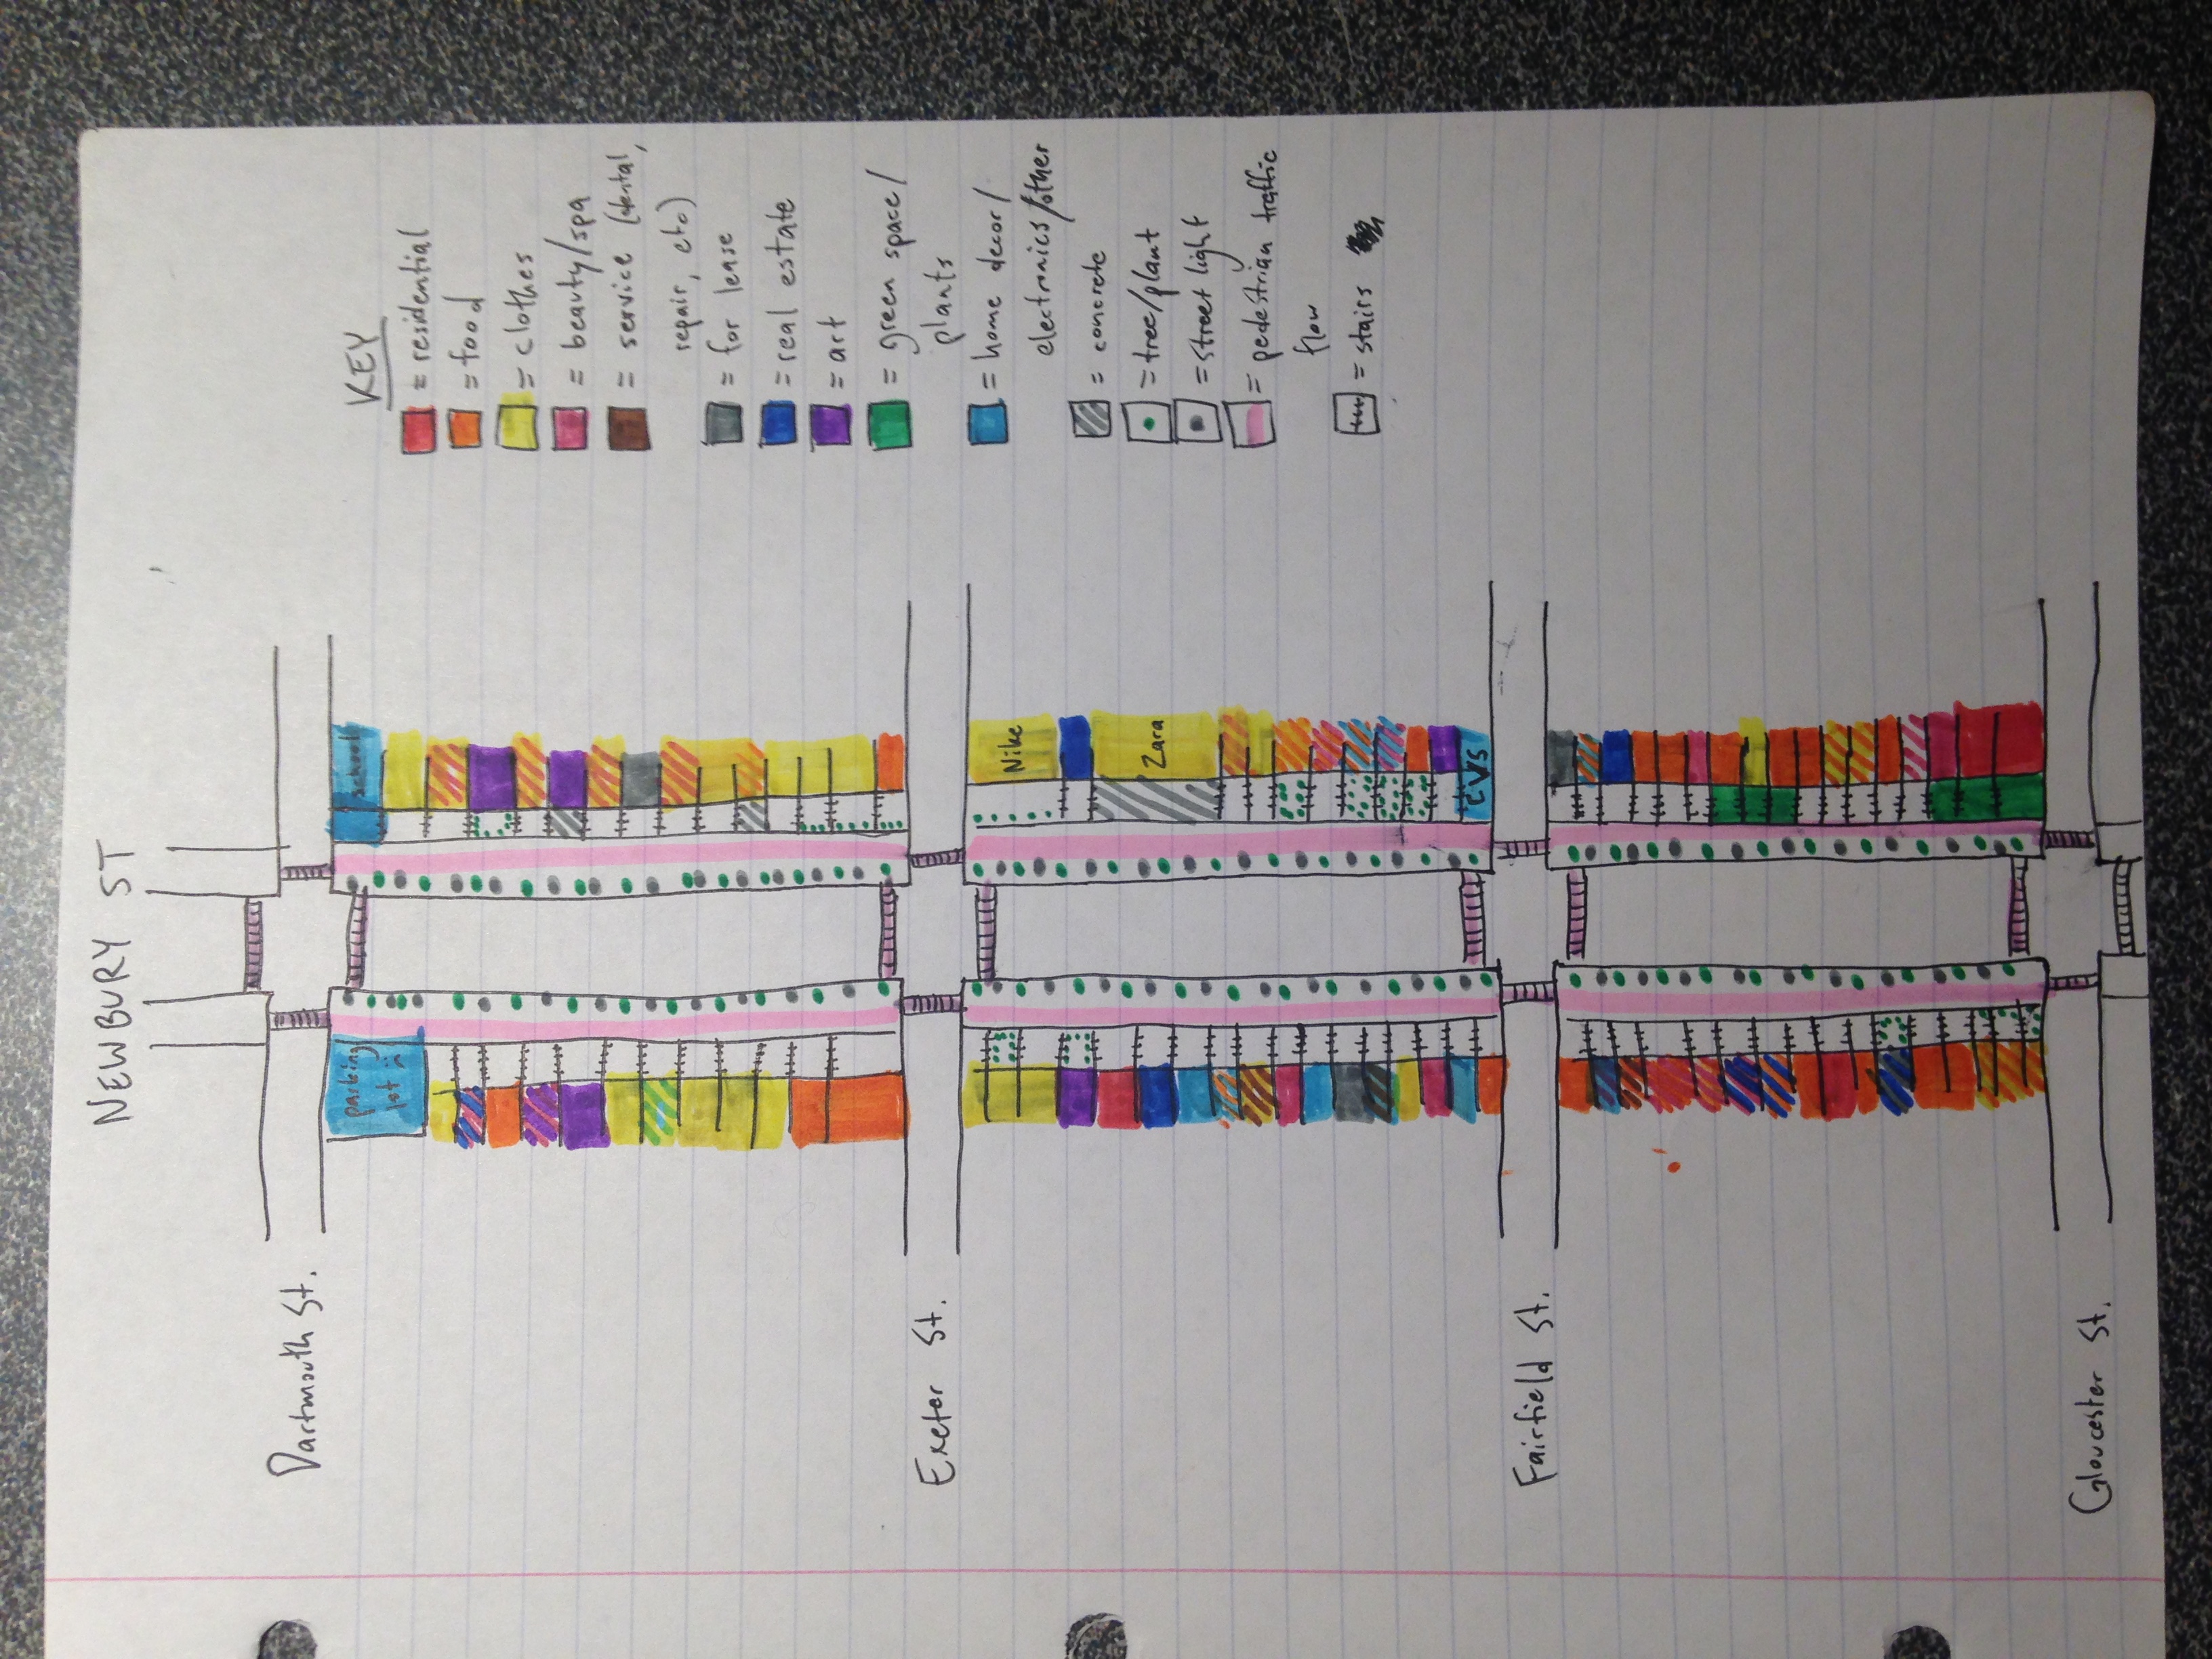 NEWBURY ST
KEY
= residential
= food
= clothes
= beauty/spa
= service (dental,
repair, etc)
= for lease
= real estate
= art
= green space/
plants
= home decor/
electronics/other
= concrete
= tree/plant
= street light
= pedestrian traffic
flow
= stairs
Dartmouth St.
parking
lot :)
school
Exeter St.
Nike
Zara
CVS
Fairfield St.
Gloucester St.